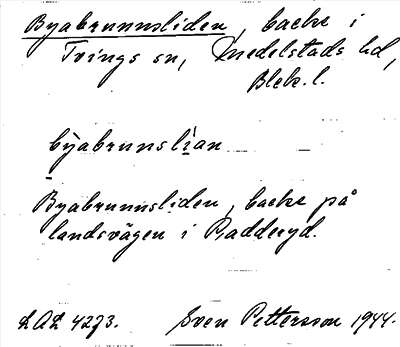 Byabrunnsliden, backe i
Tvings sn, Medelstads hd,
Blek. l.
býabrunslian
Byabrunnsliden, backe på
landsvägen i Badderyd.
LAL 4273. Sven Pettersson 1944.